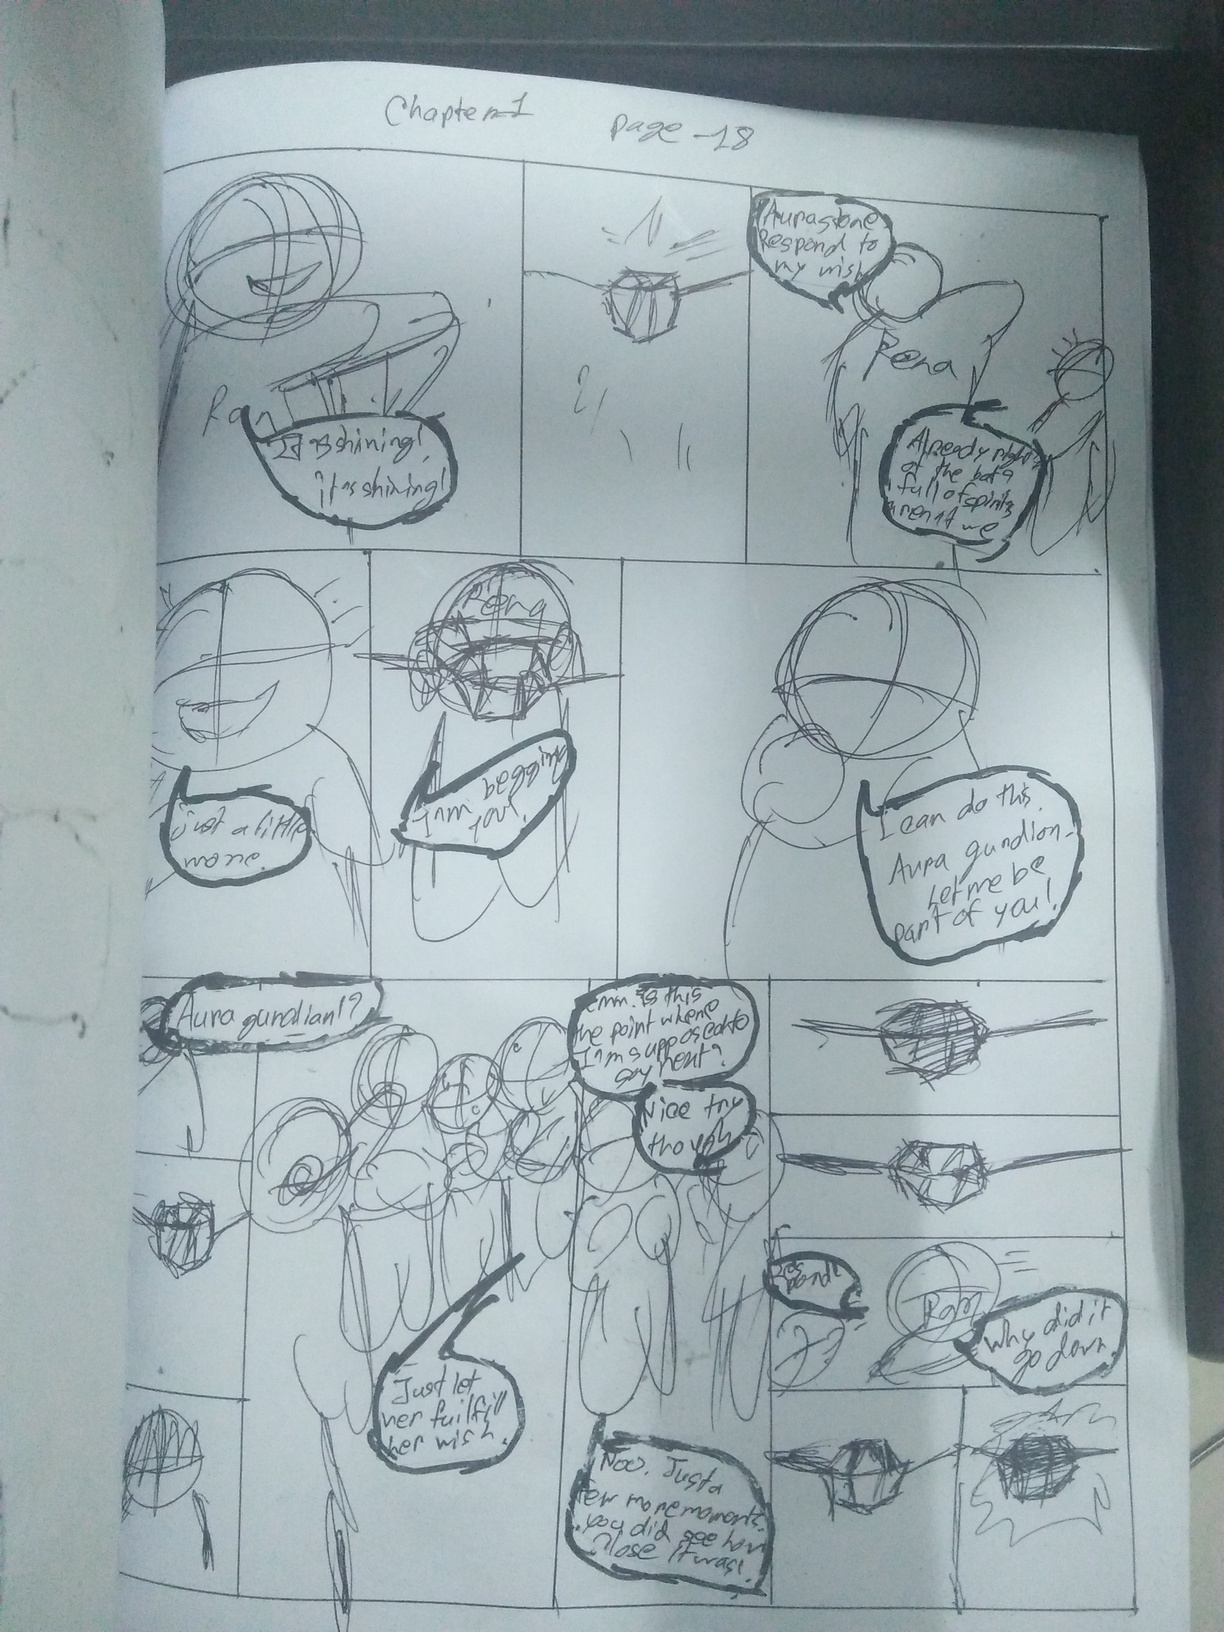 Chapter-1
page -18
Ran
It is shining!
it is shining!
Aurastone
Respond to
my wish
Rena
Already night
of the bat &
full of spirits
aren't we
just a little
more.
Rena
I'm begging
you!
I can do this.
Aura gundian.
Let me be
part of you!
Aura gundian1?
emm. is this
the point where
I'm supposed to
say next?
Nice try
though
Just let
her fuilfill
her wish.
Noo. Just a
few more moments.
you did see how
close it was!
Res
pond!
Ran
Why did it
go down.